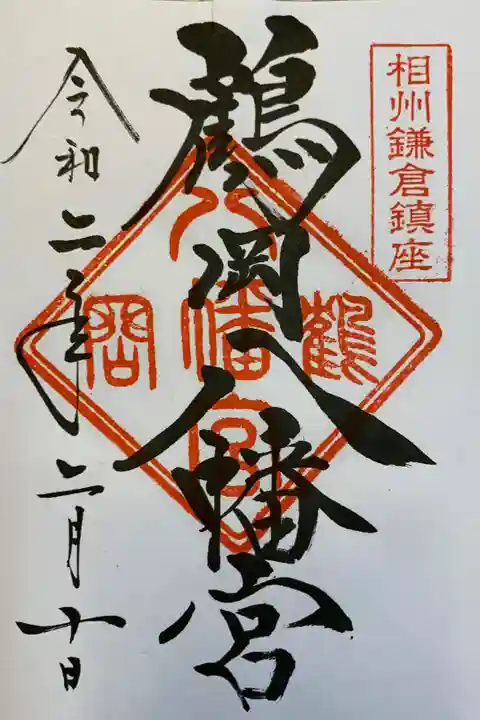 相州鎌倉鎮座
鶴岡八幡宮
鶴
八幡宮
岡
令和二年二月十日